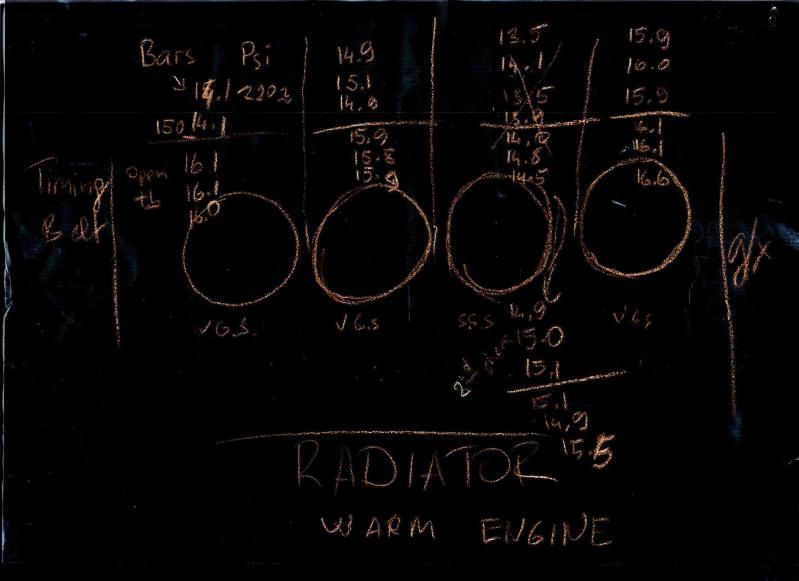 Bars Psi
14.1 220
150 14.1
Open
16.1
16.1
16.0
14.9
15.1
14.9
15.9
15.8
15.9
13.5
14.1
13.5
13.9
14.8
14.5
15.9
16.0
15.9
16.1
16.1
16.6
Timing
Belt
g/x
V G.S.
V G.S
S.G.S
V G.S
14.9
15.0
2nd
15.1
15.1
14,9
15.5
RADIATOR
WARM ENGINE